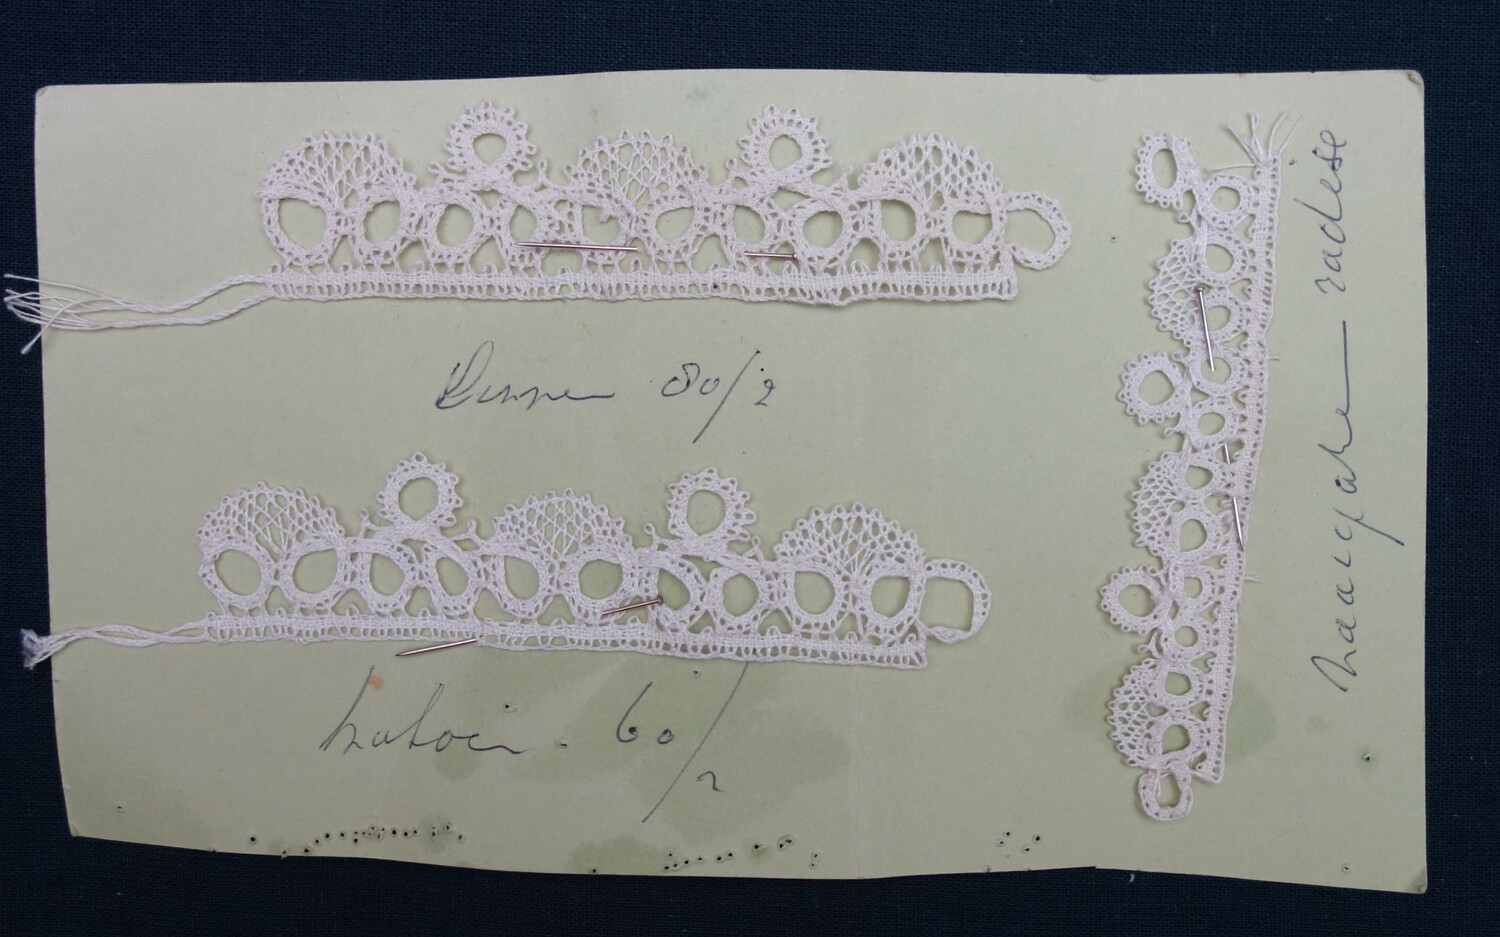 Linnen 80/2
katoen. 60/2
naaigaren zadelse